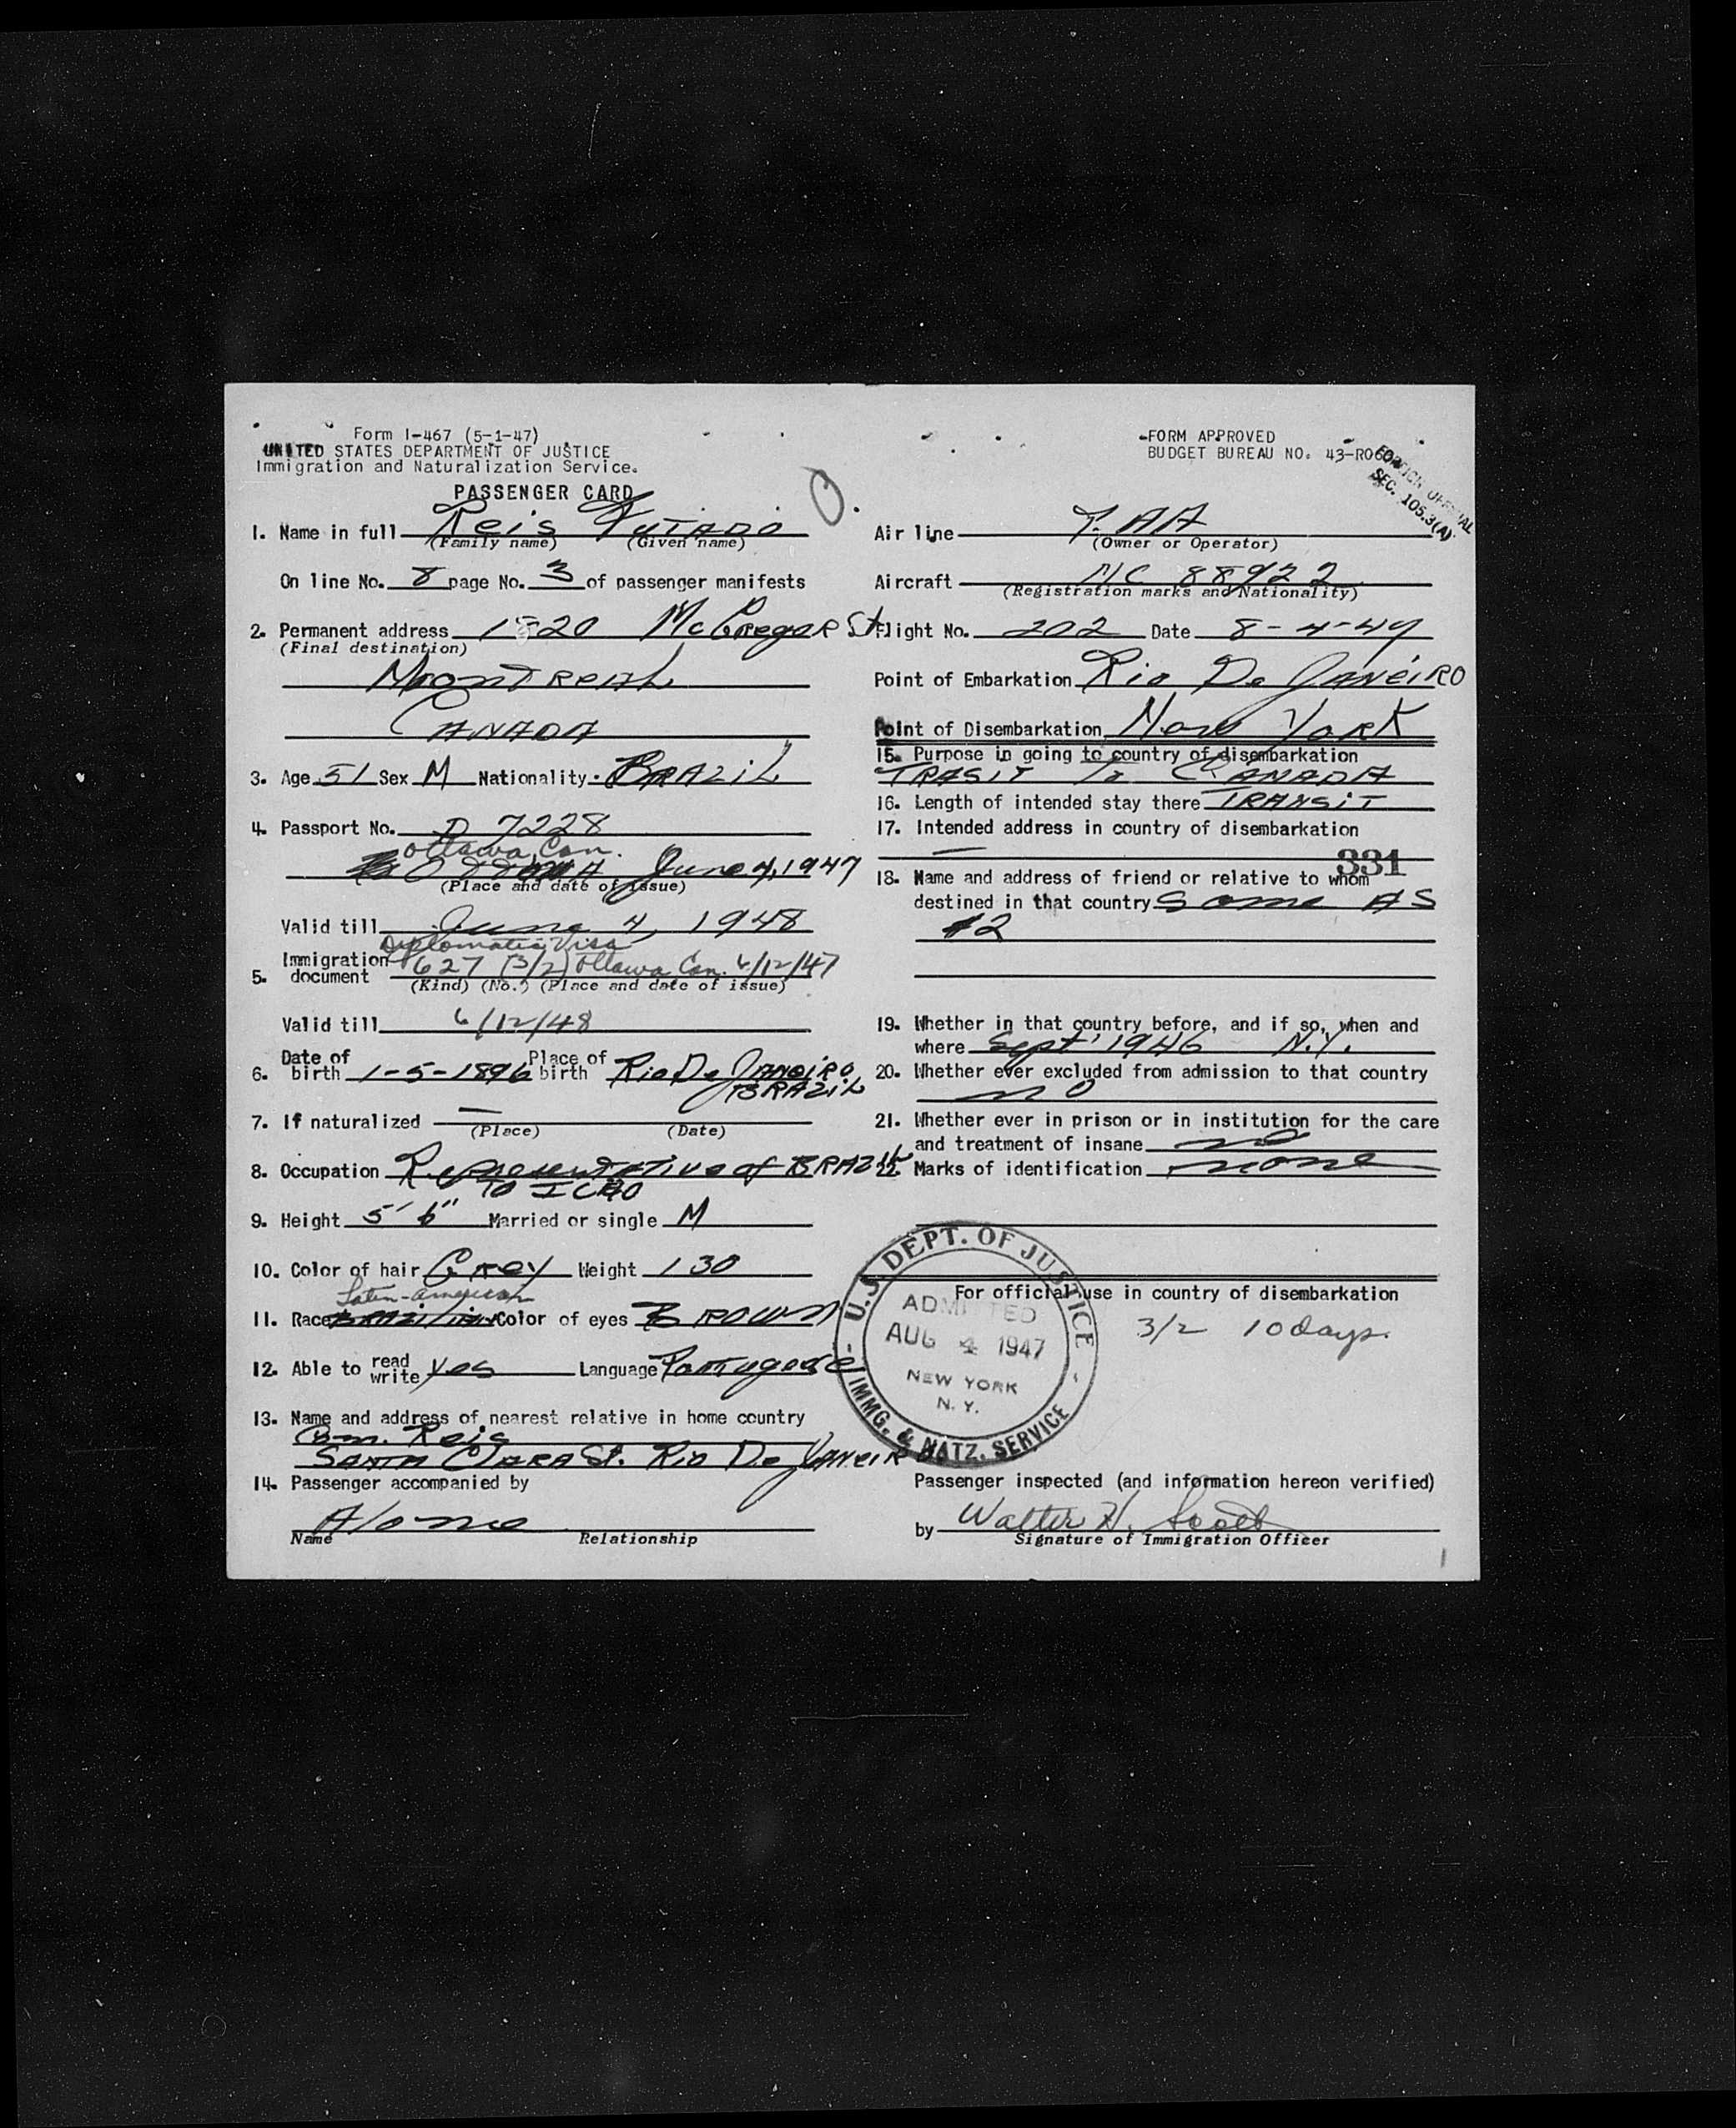 Form I-467 (5-1-47)
UNITED STATES DEPARTMENT OF JUSTICE
Immigration and Naturalization Service.
PASSENGER CARD
FORM APPROVED
BUDGET BUREAU NO. 43-R060
FOREIGN OFFICIAL
SEC. 105.3(A)
1. Name in full Reis Futado
(Family name) (Given name)
On line No. 8 page No. 3 of passenger manifests
2. Permanent address 1820 McGregor St.
(Final destination)
Moontreal
CANADA
3. Age 51 Sex M Nationality BRAZiL
4. Passport No. D 7228
Ottawa, Can.
June 4, 1947
(Place and date of issue)
Valid till June 4, 1948
Diplomatic Visa
5. Immigration document 627 (3/2) Ottawa Can. 6/12/47
(Kind) (No.) (Place and date of issue)
Valid till 6/12/48
6. Date of birth 1-5-1896 Place of birth Rio De JANEIRO
BRAZiL
7. If naturalized —
(Place) (Date)
8. Occupation Representative of BRAZIL
TO ICAO
9. Height 5' 6" Married or single M
10. Color of hair Grey Weight 130
Latin-American
11. Race Color of eyes BROWN
12. Able to read write Yes Language Portugese
13. Name and address of nearest relative in home country
Com. Reis
SANTA CLARA St. Rio De JANEIRO
14. Passenger accompanied by
Alone
Name Relationship
Air line P.AA
(Owner or Operator)
Aircraft NC 88922
(Registration marks and Nationality)
Flight No. 202 Date 8-4-47
Point of Embarkation Rio De JANEIRO
Point of Disembarkation New York
15. Purpose in going to country of disembarkation
TRASIT To CANADA
16. Length of intended stay there TRANSIT
17. Intended address in country of disembarkation
—
331
18. Name and address of friend or relative to whom
destined in that country Same AS
#2
19. Whether in that country before, and if so, when and
where Sept' 1946 N.Y.
20. Whether ever excluded from admission to that country
no
21. Whether ever in prison or in institution for the care
and treatment of insane no
22. Marks of identification none
For official use in country of disembarkation
3/2 10 days.
U.S. DEPT. OF JUSTICE
ADMITTED
AUG 4 1947
NEW YORK
N.Y.
IMMG. & NATZ. SERVICE
Passenger inspected (and information hereon verified)
by Walter H. Scott
Signature of Immigration Officer